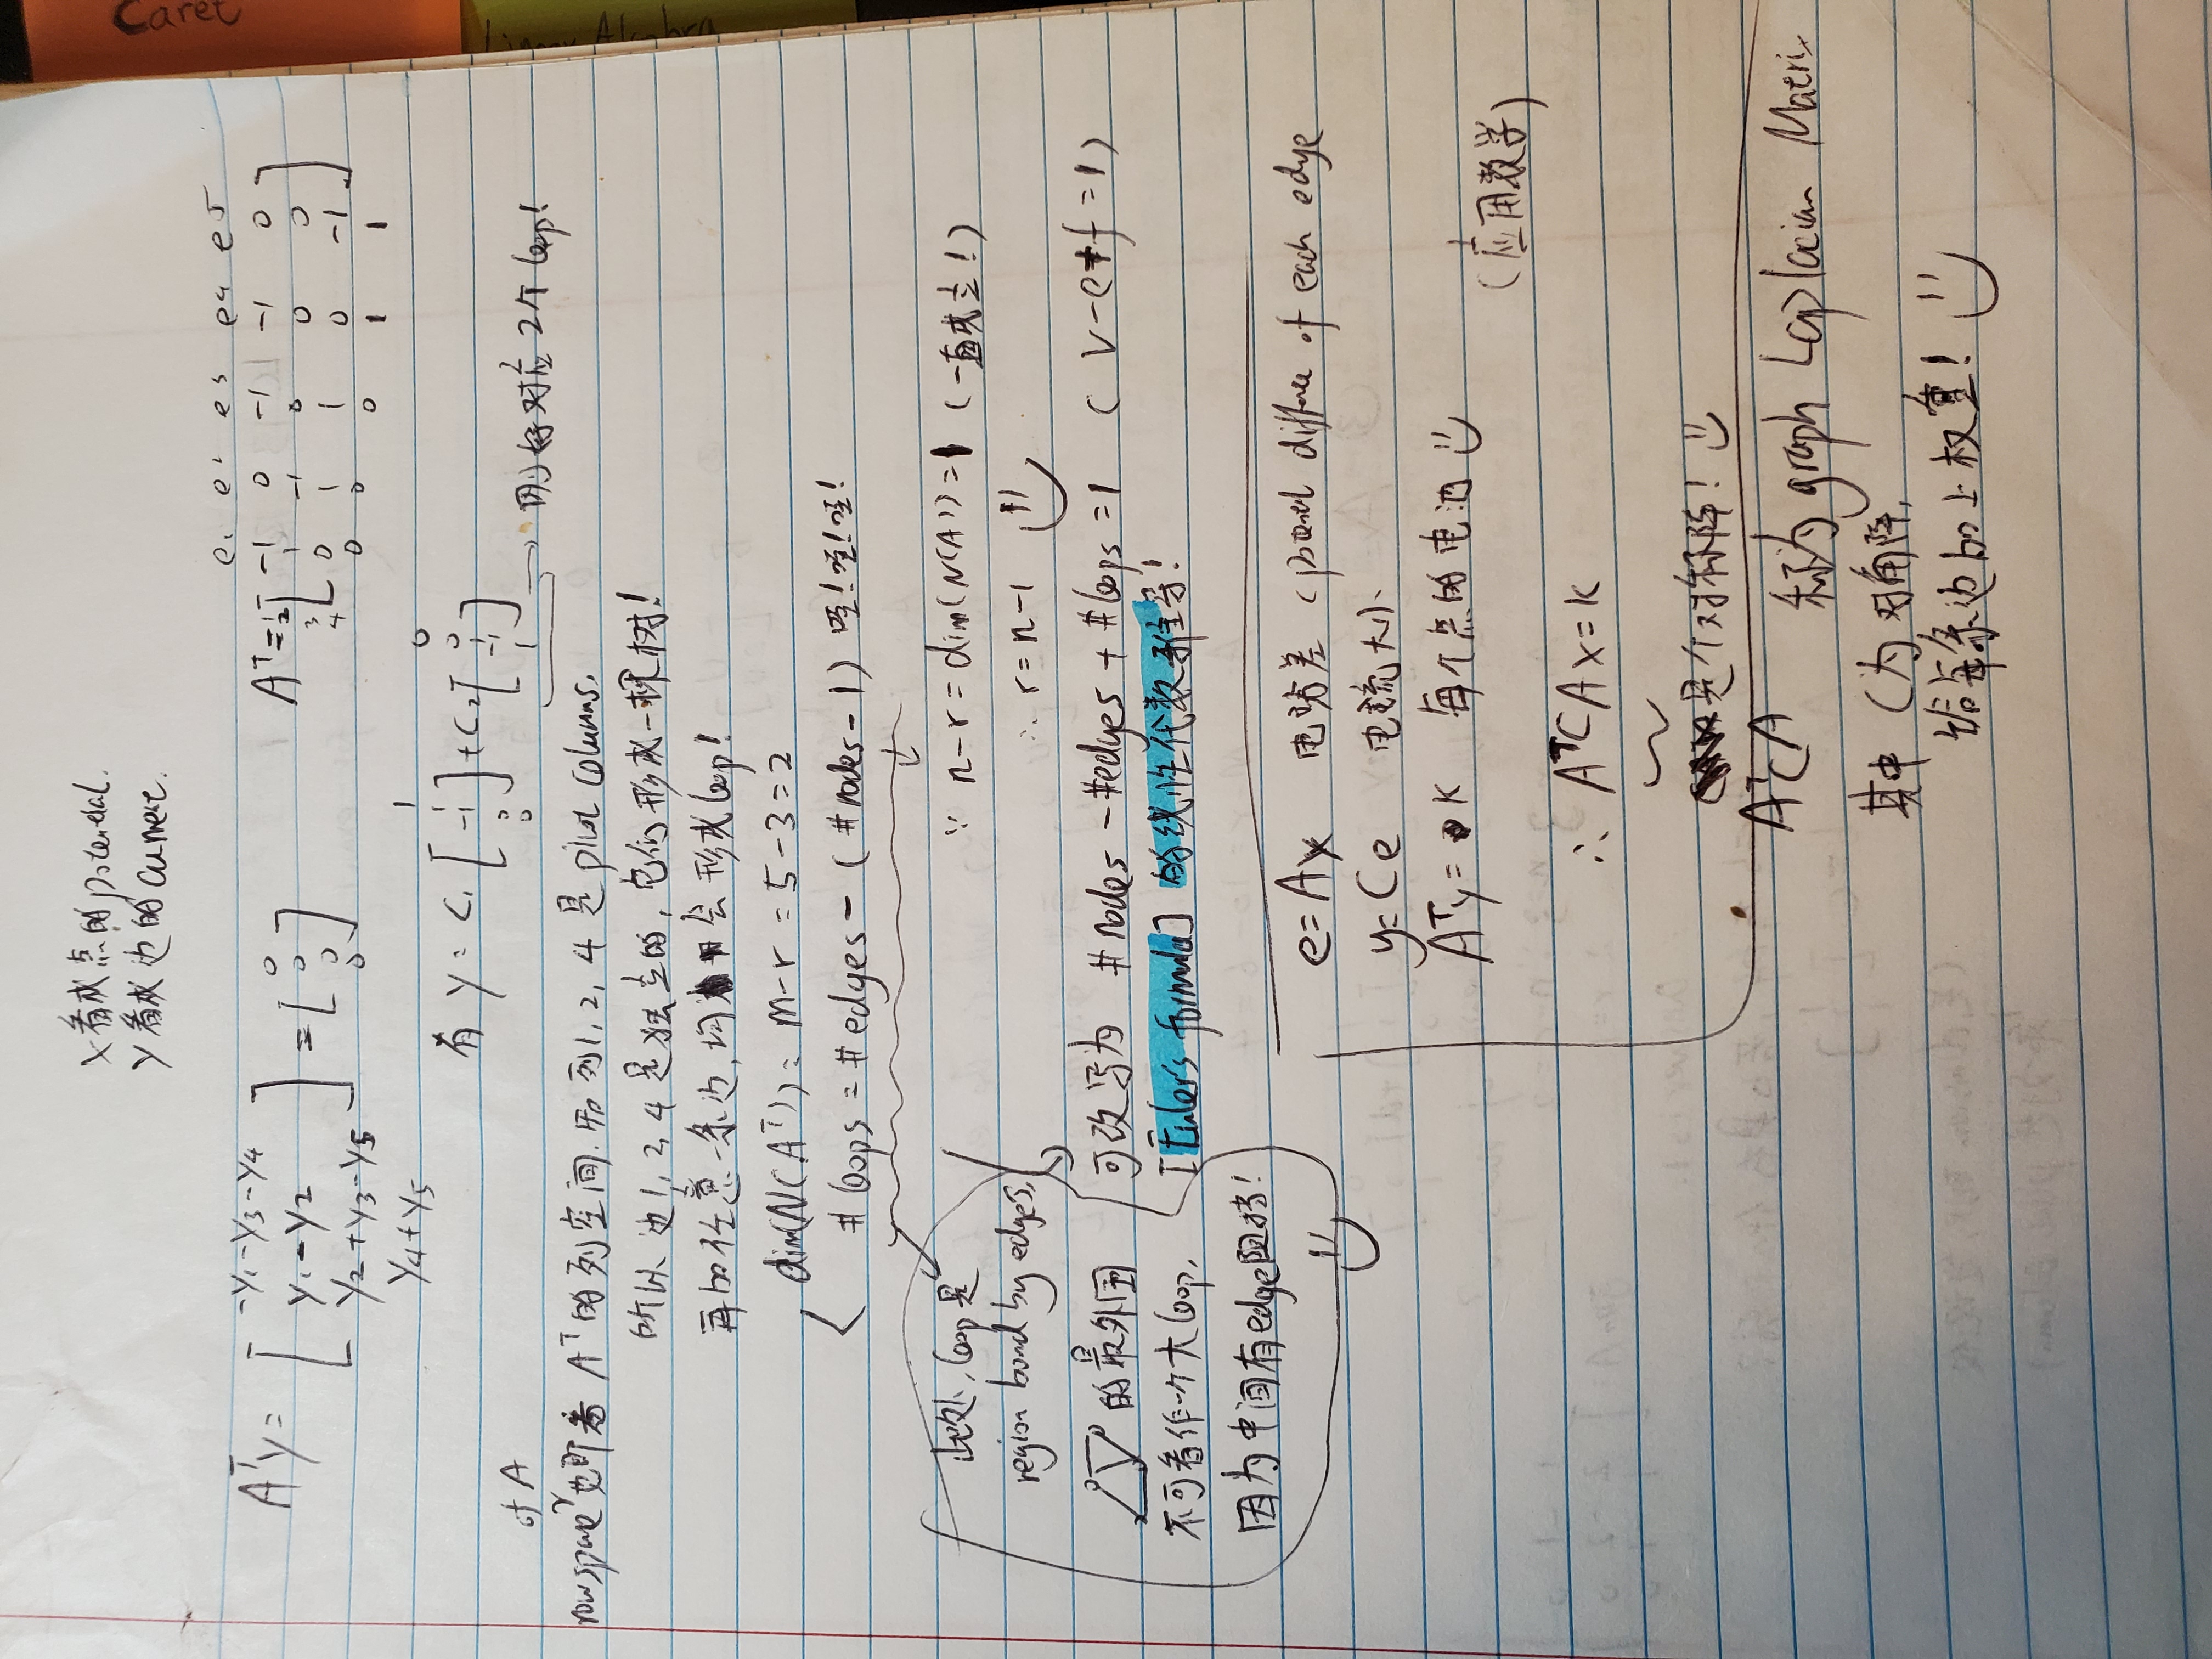 x看成点的potential.
y看成边的current.
e1 e2 e3 e4 e5
AᵀY = [ -y1-y3-y4 ] = [ 0 ]
[ y1-y2 ] [ 0 ]
[ y2+y3-y5 ] [ 0 ]
[ y4+y5 ] [ 0 ]
Aᵀ = 1 [ -1 0 -1 -1 0 ]
2 [ 1 -1 0 0 0 ]
3 [ 0 1 1 0 -1 ]
4 [ 0 0 0 1 1 ]
有 y = C1 [ 1 1 -1 0 0 ] + C2 [ 0 0 1 -1 1 ] → 刚好对应2个loop!
row space of A 也即看 Aᵀ的列空间. 而列1, 2, 4 是 pivot columns.
所以 边1, 2, 4 是独立的, 它们形成一棵树!
再加任意一条边, 均会形成loop!
dim(N(Aᵀ)) = m-r = 5-3=2
# loops = # edges - (# nodes - 1) 哇!哇!哇!
∵ n-r = dim(N(A)) = 1 (一直成立!)
∴ r=n-1
此处, loop是
region bond by edges,
的最外围
不可看作一个大loop,
因为中间有edge阻挡!
可改写为 # nodes - # edges + # loops = 1 ( v-e+f=1)
[Euler's formula] 的线性代数推导!
e=Ax 电势差 (potential difference of each edge
y=Ce 电流大小
Aᵀy = k 每个点的电池
(应用数学)
∴ AᵀCAx=k
是个对称阵!
AᵀCA 称为 graph Laplacian Matrix
其中 C为对角阵,
给每条边加上权重!
Caret
Linear Algebra